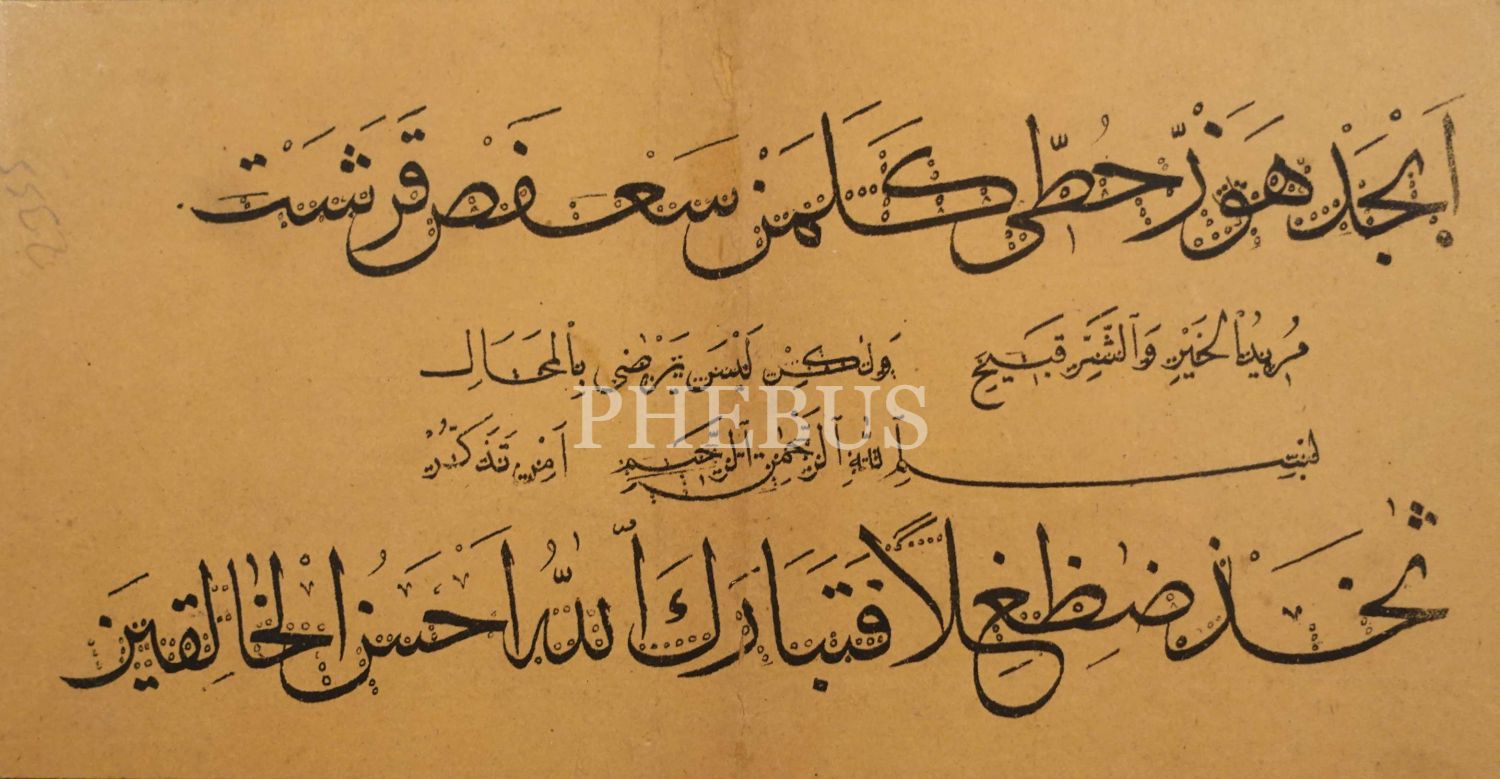 ابجد هوز حطي كلمن سعفص قرشت
مريد الخير والشر قبيح ولكن ليس يرضى بالمحال
بسم الله الرحمن الرحيم امن تذكر
ثخذ ضظغ لا فتبارك الله احسن الخالقين
PHEBUS